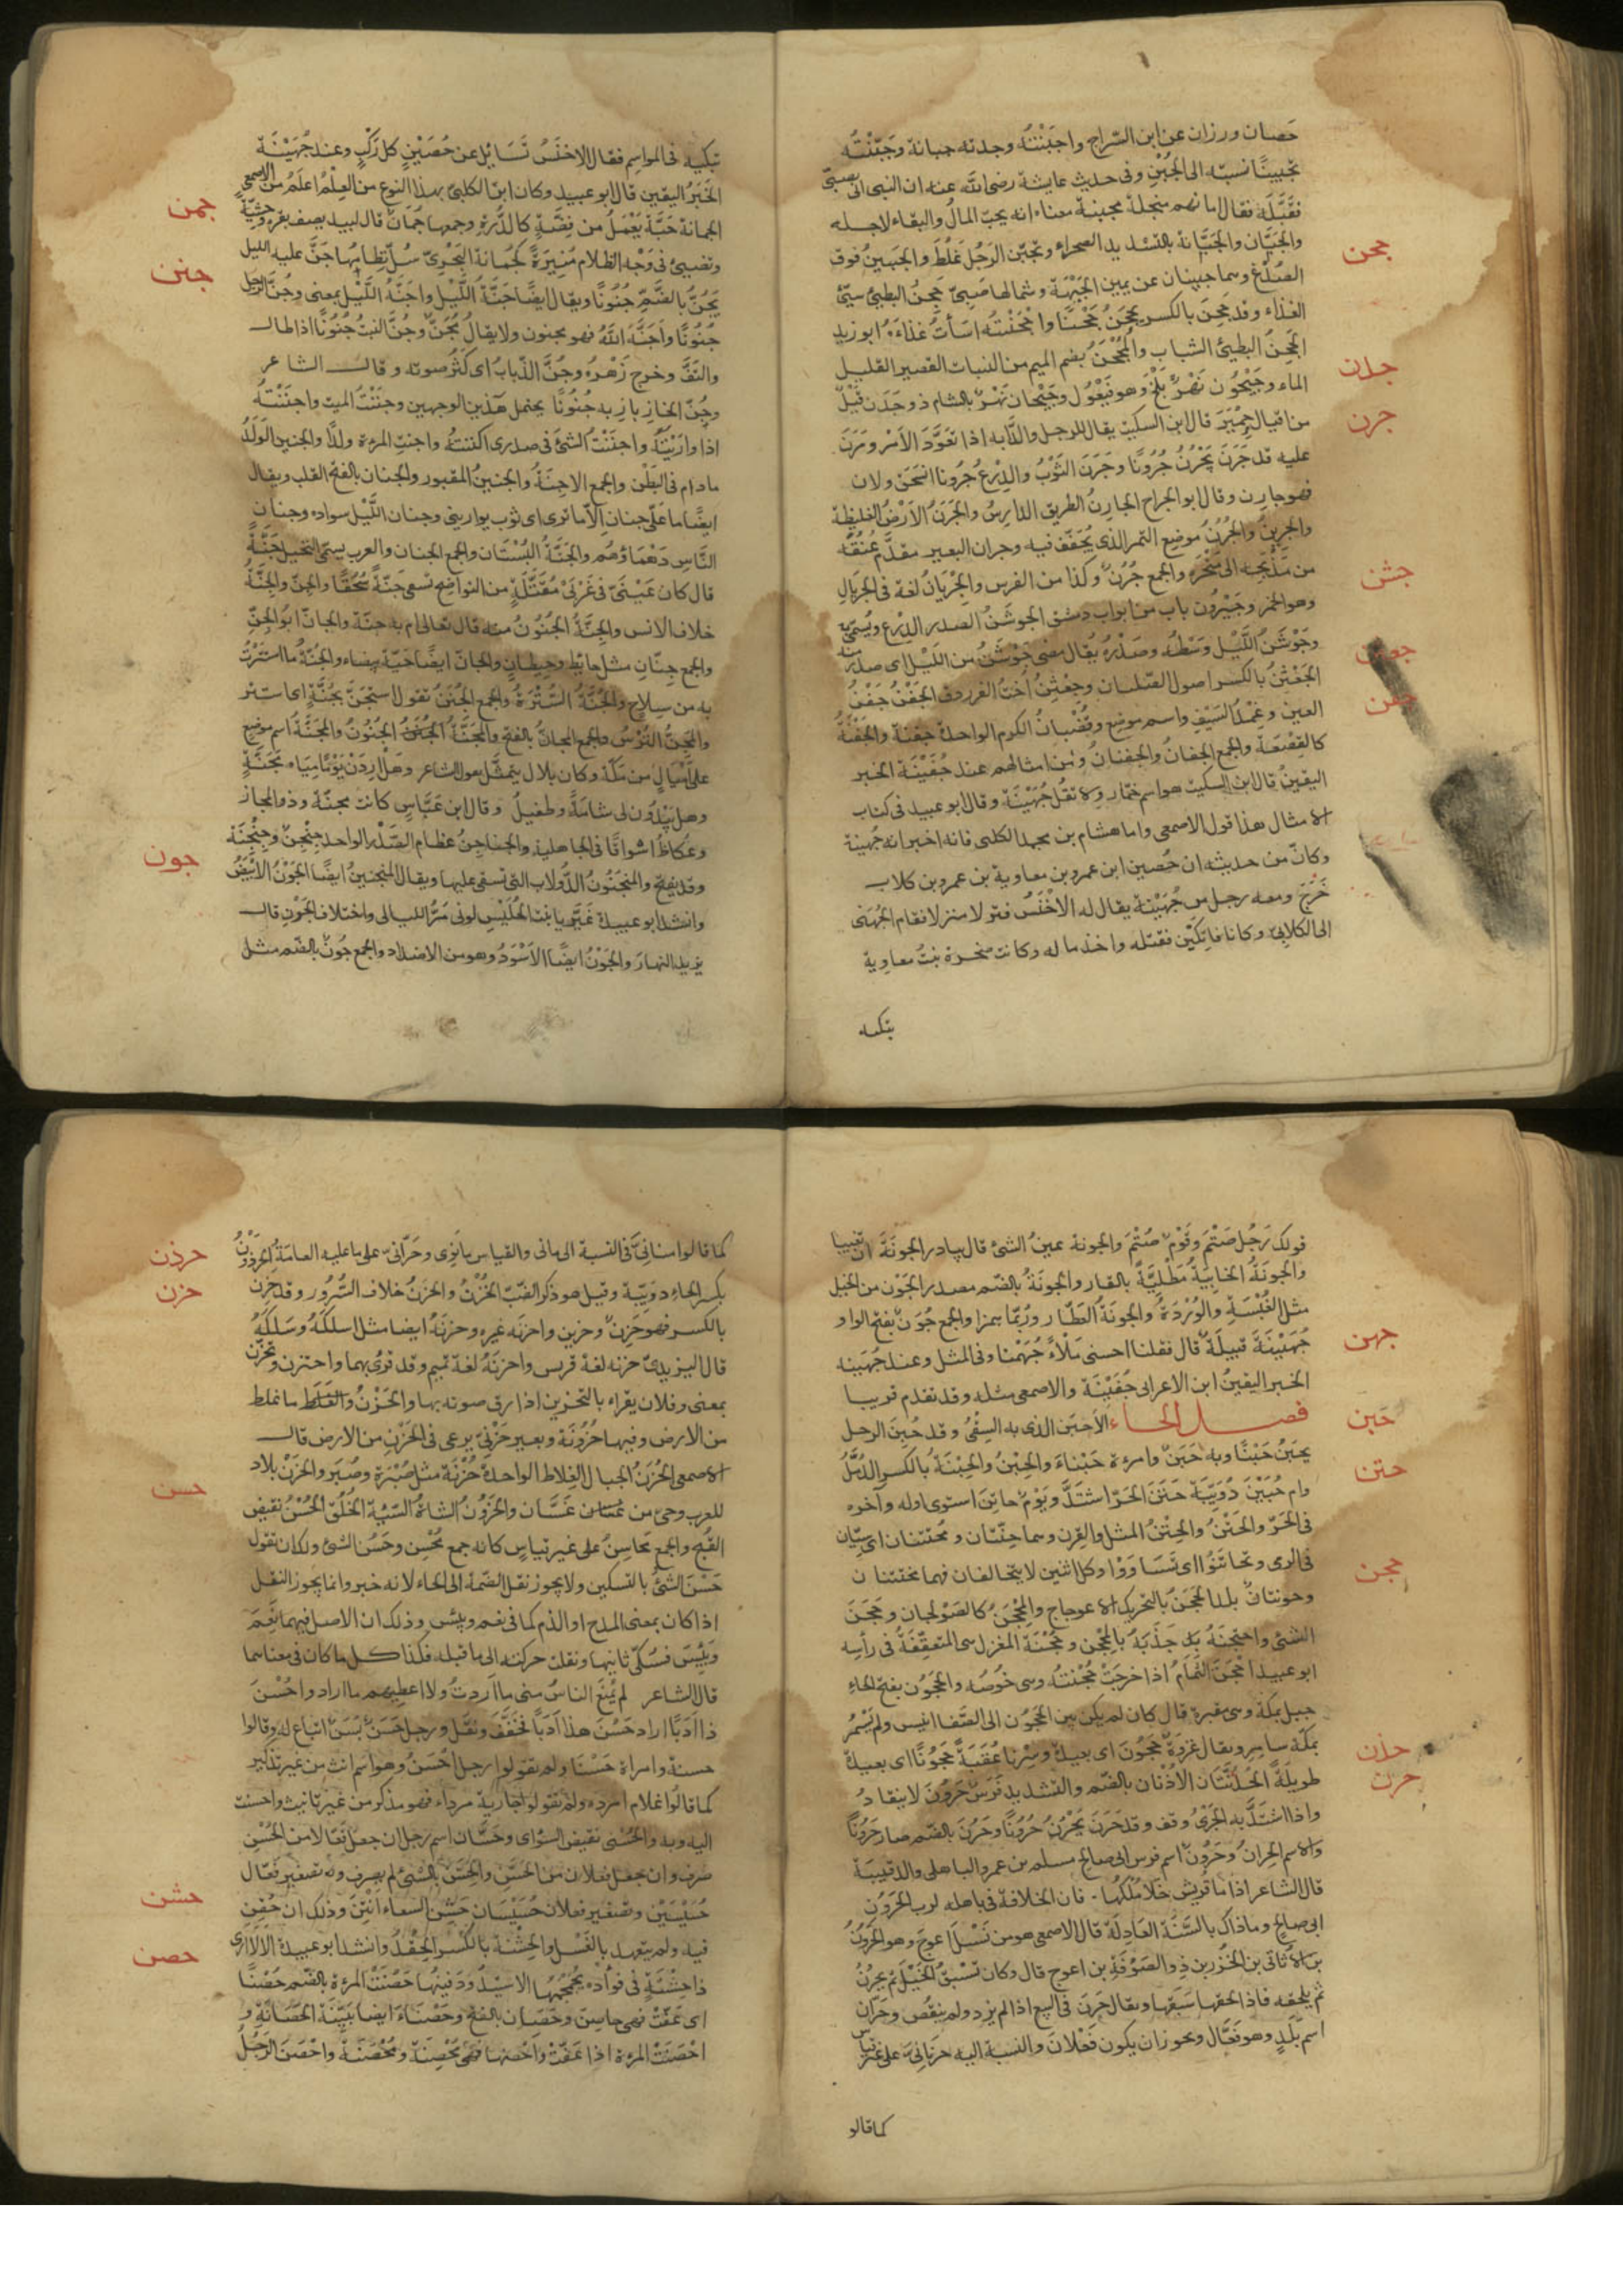 حَصان ورزان عن ابن السّراج واجبَنْتُهُ وجدته جبانا وجَبَّنْتُه
تجبينًا نسبْته الى الجُبْنِ وفى حديث عايشة رضى الله عنه ان النبى اتى بصبىّ
فقَبَّلَه فقال اما انهم مبخلة مجبنة معناه انه يحبّ المالُ والبقاء لاجله
والجَبَّان والجَبَّانة بالتشديد الصحراء وتجبّن الرَجُل غَلُظَ والجَبينُ فوق
جحن
الصُدْغ وهما جبينان عن يمين الجَبْهَة وشمالها صَبِىّ جَحِنُ البطىءُ سيّئُ
الغذاء وقد جَحِنَ بالكسر يَجْحَنُ جَحَنًا واَجْحَنْتُه اسَأتُ غذاءَه ابو زيد
الجَحِنُ البطيئُ الشباب والمُجْحَنُ بضم الميم من النبات القصير القليل
جدن
الماء وجَيْحُون نَهْرُ بَلْخَ وهو فَيْعُول وجَيْحان نهْرٌ بالشام ذو جَدَن قَيْلٌ
جرن
من اقيال حِمْيَرَ قال ابن السكيت يقال للرجل والدّابه اذا تعَوَّدَ الاَمْر ومَرَنَ
عليه قد جَرَنَ يَجْرُنُ جُرُونًا وجَرَنَ الثَوْبُ والدِرْعُ جُرُونا انسحَق ولان
فهو جارِن وقال ابو الجراح الجارِنُ الطريق الدّارِسُ والجَرَنُ الاَرْضُ الغليظة
والجَرِينُ والجُرْنُ مَوضِع التمر الذى يُجَفّف فيه وجران البعير مقدَّم عُنُقِه
من مَذْبَحِه الى مَنْحَره والجمع جُرُنٌ وكذا من الفرس والجِرْيَانُ لغة فى الجِرْيالِ
جشن
وهو الخمر وجَيْرُون باب من ابواب دمشق الجَوشَنُ الصدر الدِرْع ويُسَمّى به
وجَوْشَنُ اللَيْل وَسَطُه وصَدْرُه يُقال مضى جَوْشَنٌ من اللَيْل اى صدرٌ منه
جعثن
الجِعْثِنُ بالكسر اصول الصّليان وجِعْثِنُ اُخْتُ الفرزدق الجَفْنُ جَفْنُ
جفن
العين وغِمْدُ السَيْف واسم موضع وقُضْبانُ الكرم الواحدة جَفْنَة والجَفْنَةُ
كالقَصْعَة والجمع الجِفانُ والجفنانُ ومن امثالهم عند جُفَيْنَة الخبر
اليقينُ قال ابن السكيت هو اسم خمّار ولا تقُل جُهَيْنَة وقال ابو عبيد فى كتاب
الامثال هذا قول الاصمعى واما هشام بن محمد الكلبى فانه اخبر انه جُهينة
وكان من حديثه ان حُصين ابن عمرو بن معاوية بن عمرو بن كلاب
خَرَجَ ومعه رجل من جُهَيْنة يقال له الاَخْنَسُ فنزلا منزلا فقام الجُهَنى
الى الكلابىّ وكانا فاتِكَيْن فقتله واخذ ماله وكانت صخرة بنتُ معاوِية
تبكيه
تبكيه فى المواسِم فقال الاخنَسُ تَسَائِلُ عن حُصَيْنٍ كلَ رَكْبٍ وعند جُهَيْنَةَ
الخَبَرُ اليقين قال ابو عبيد وكان ابن الكلبىّ بهذا النوع من العِلْم اعلَمُ من الاصمعى
جمن
الجمانة حَبَّة تُعْمَلُ من فِضّةٍ كالدُرّة وجمعها جُمانٌ قال لبيد يصف بقرة وحشيّة
جنن
وتضيئ فى وَجْه الظلام مُنِيرَةً كجُمانة البَحْرِىّ سُلّ نظامُها جَنَّ عليه الليل
يَجُنُّ بالضَّمِّ جُنُونًا ويقال ايضًا جَنَّهُ اللَيْل واَجَنَّهُ اللَيْل بمعنى وجُنَّ الرجل
جُنُونًا واَجَنَّه اللهُ فهو مجنون ولا يقالُ مُجَنٌّ وجُنَّ النبتُ جُنُونًا اذا طال
والتَفَّ وخرج زَهْرُه وجُنَّ الذّبابُ اى كَثُر صوته وقال الشاعر
وجُنّ الخازِ بازِ به جُنُونًا يحتمل هذين الوجهين وجنَنْتُ الميت واجنَنْتُه
اذا وارَيْتَه واجنَنْتُ الشئَ فى صدرى اكننتُه واجنت المرءة ولدًا والجنين الولَدُ
مادام فى البَطْن والجمع الاجِنَّةُ والجنينُ المقبور والجنان بالفتح القلب ويقال
ايضًا ما علىّ جنان الّا ما ترى اى ثوب يوارينى وجنان اللَّيْل سواده وجنان
النَّاس دَهْمَاؤهُم والجَنَّةُ البُسْتان والجمع الجنان والعرب يسمّى النخيل جَنَّةً
قال كان عَيْنَىَّ فى غَرْبَىْ مُقَتَّلَةٍ من النواضح تسقى جَنّةً سُحُقًا والجِنّ والجِنّةُ
خلاف الانس والجِنَّةُ الجُنُونُ منه قال تعالى ام به جِنّة والجانّ ابو الجِنّ
والجمع جِنّان مثل حائطٍ وحِيطانٍ والجانّ ايضًا حَيّة بيضاء والجُنّةُ ما استَتَرْتُ
به من سِلاح والجُنَّةُ السُتْرَةُ والجمع الجُنَنُ تقول استَجَنَّ بجُنّةٍ اى استتر
والمِجَنُّ التُرْسُ والجمع المجانُّ بالفتح والمَجَنَّةُ الجُنُونُ والمَجَنَّةُ اسم موضع
على اَمْيالٍ من مكّة وكان بلال يتمثّل بقول الشاعر وهل اَرِدَنْ يَوْمًا مياهَ مَجَنّةٍ
وهل يَبْدُوَن لى شامَةٌ وطفيلُ وقال ابن عَبَّاسٍ كانت مجنّة وذو المجاز
وعُكاظُ اسْواقًا فى الجاهلية والجناجِنُ عظام الصَدْر الواحد جِنْجِنٌ وجِنْجِنَة
جون
وقد يفتح والمنجَنُونُ الدُّولاب التى تسقى عليها ويقال المنجنينُ ايضًا الجَوْنُ الاَبْيَضُ
وانشد ابو عبيدة غَيَّرَ يا بنت الحُلَيْس لونى مَرُّ الليالى واختلاف الجَوْن قال
يريد النهارَ والجَوْنُ ايضًا الاَسْوَدُ وهو من الاضداد والجمع جُونٌ بالضّم مثل
قولك رَجُل صَتْمٌ وقَوْم صُتْمٌ والجونة عينُ الشئ قال يبادر الجونَةَ ان تغيبا
والجونَةُ الخابِيَةُ مَطْلِيَّةً بالقار والجونَةُ بالضّم مصدر الجَوْن من الخيل
مثل الغُبْسَةِ والوُرْدَةِ والجُونَةُ العَطّار ورُبّما همز والجمع جُوَنٌ بفتح الواو
جهن
جُهَيْنَةُ قبيلَة قال فقلنا احسنى مَلْاً جُهَيْنا وفى المثل وعند جُهينة
الخبر اليقينُ ابن الاعرابى جُفَيْنَة والاصمعى مثله وقد تقدم قريبا
حبن
فصل الحاء الاَحبَن الذى به السِقْىُ وقد حَبِنَ الرجل
يحبَنُ حَبَنًا وبه حَبَنٌ وامرءة حَبْناءَ والحِبْنُ والحِبْنَةُ بالكسر الدُمَّلُ
حتن
وام حُبَيْنَ دُوَيْبّة حَتَنَ الحَرّ اشتَدَّ ويَوْم حاتِنٌ استوى اوله وآخره
فى الحَرّ والحَتْنُ والحِتْنُ المثل والقِرن وهما حِتْنان ومُحتَتنان اى سِيّان
فى الرمى وتحاتَنُوا اى تَساوَوْا وكل اثنين لا يتخالفان فهما محتتنان
حجن
وحوتنان بلد الحَجَنُ بالتحريك الاعوجاج والمِحْجَنُ كالصَوْلجان وحَجَنَ
الشئ واحتجنَهُ اذا جَذَبَهُ بالمِحْجن وحُجْنَة المغزل هى المتعقِّفَةُ فى رأسِه
ابو عبيد احْجَنَ الثُمَامُ اذا خرجَتْ حُجْنَتُه وهى خُوصُه والحَجُون بفتح الحاءِ
جبل بمكة وهى مقبرة قال كان لم يكن بين الحَجُون الى الصَفا انيس ولم يَسْمُر
بمكّة سامِر ويقال غَزوَة حَجُونٌ اى بعيدة وسِرْنا عُقْبَةً حَجُونًا اى بعيدة
حذن
طويلَةً الحُذُنَّتانِ الاُذنان بالضّم والتشديد فَرَسٌ حَرُونٌ لا ينقاد
حرن
واذا اشتَدَّ به الجَرْىُ وقف وقد حَرَنَ يَحْرُنُ حُرُونًا وحَرُنَ بالضّم صار حَرُونًا
والاسم الحِرانُ وحَرُونٌ اسم فرس ابى صالح مسلم بن عمرو الباهلى والد قتيبة
قال الشاعر اذا ما قُريش خَلا مُلْكُها، فان الخلافة فى باهله لرب الحَرُون
ابى صالح وما ذاك بالسَنّة العادِلَة قال الاصمعى هو من نَسْلِ اَعوَج وهو الحَرُونُ
بن الاَثاثى بن الخُزَر بن ذِى الصَوْفَة بن اعوج قال وكان تسْبقُ الخَيْل ثم يحرُنُ
ثم يلحقه فاذا لحقها سَبَقَها ويقال حَرَن فى البيع اذا لم يزد ولم ينقُص وحَرّان
اسم بَلَدٍ وهو فَعّال ويجوز ان يكون فَعْلانَ والنسبة اليه حَرْنانِىّ على غير قياس
كما قالو
حرذن
كما قالوا منانِىّ فى النسبة الى مانى والقياس مانَوِى وحَرّانى على ما عليه العامَة الحِرذَوْنُ
حزن
بكسر الحاءِ دوَيبّة وقيل هو ذكر الضبّ الحُزْنُ والحَزَنُ خلاف السُرُور وقد حَزِنَ
بالكسر فهو حَزِنٌ وحزين واحزنَه غيره وحزنَهُ ايضا مثل اسلكَهُ وسَلَكَهُ
قال اليزيدىّ حزنه لغة قريش واحزنَهُ لغة تميم وقد قرئ بهما واحتزن وتحزّن
بمعنى وفلان يقراء بالتحزين اذا رق صوته بها والحَزْنُ والغَلَظ ما غلظ
من الارض وفيها حُزُونَة وبعير حَزْنِىّ يرعى فى الحَزْن من الارض قال
الاصمعى الحُزَنُ الجبال الغِلاظ الواحدة حُزْنَة مثل صُبْرَة وصُبَر والحَزْنُ بلاد
حسن
للعرب وحىّ من غَسَّان والحَزَوَّن الشاةُ السَيّئة الخُلُق الحُسْنُ نقيض
القُبْح والجمع محاسِنُ على غير قياسٍ كانه جمع مَحْسَن وحَسُنَ الشئ ولك ان تقول
حَسْنَ الشئُ بالتسكين ولا يجوز نقل الضمّة الى الحاء لانه خبر وانما يجوز النقل
اذا كان بمعنى المدح او الذم كما فى نعم وبئس وذلك ان الاصل فيهما نَعِمَ
وبَئِسَ فسُكّن ثانيها ونقلت حركته الى ما قبله فكذا كل ما كان فى معناهما
قال الشاعر لم يَمْنَع الناسُ منى ما اَردتُ ولا اعطيهم ما ارادوا حُسْنَ
ذا ادَبًا اراد حَسُنَ هذا اَدَبًا فخفَّفَ ونقل ورجل حَسَنٌ بَسَنٌ اتباع له وقالوا
حسنة وامراة حَسْنَا ولم يقولوا رجل اَحْسَنُ وهو اسم انث من غير تذكير
كما قالُوا غلام امرد ولم تقولوا جارية مرداء فهو مذكر من غير تانيث واحسنت
اليه وبه والحُسْنى نقيض السُوّاى وحَسّان اسم رجل ان جعل فَعّالا من الحُسْن
صرف وان جعل فعلان من الحَسِّ والحِسّ بالشئ لم يصرف ولا تصغير فَعّال
حشن
حُسَيْسَيْن وتصغير فعلان حُسَيْسَان حَشِنَ السقاء اَنْتَنَ وذلك ان حُقِنَ
فيه ولم يتعهد بالغَسْل والحِشْنَة بالكَسْر الحِقْدُ وانشد ابو عبيدة الا لا ارى
حصن
ذا حِشْنَةٍ فى فوأده يُجَمجِمُها الا سَيَبْدُو دَفينُها حَصُنَتْ المرءة بالضّم حُصْنًا
اى عَفّتْ فهى حاصِن وحَصَان بالفتح وحَصْنَاءَ ايضا بَيّنَة الحَصَانَةِ و
احْصَنَتْ المرءة اذا عَفّتْ واحصَنها فهى مُحْصِنَة ومُحْصَنَة واحْصَنَ الرَجُلُ